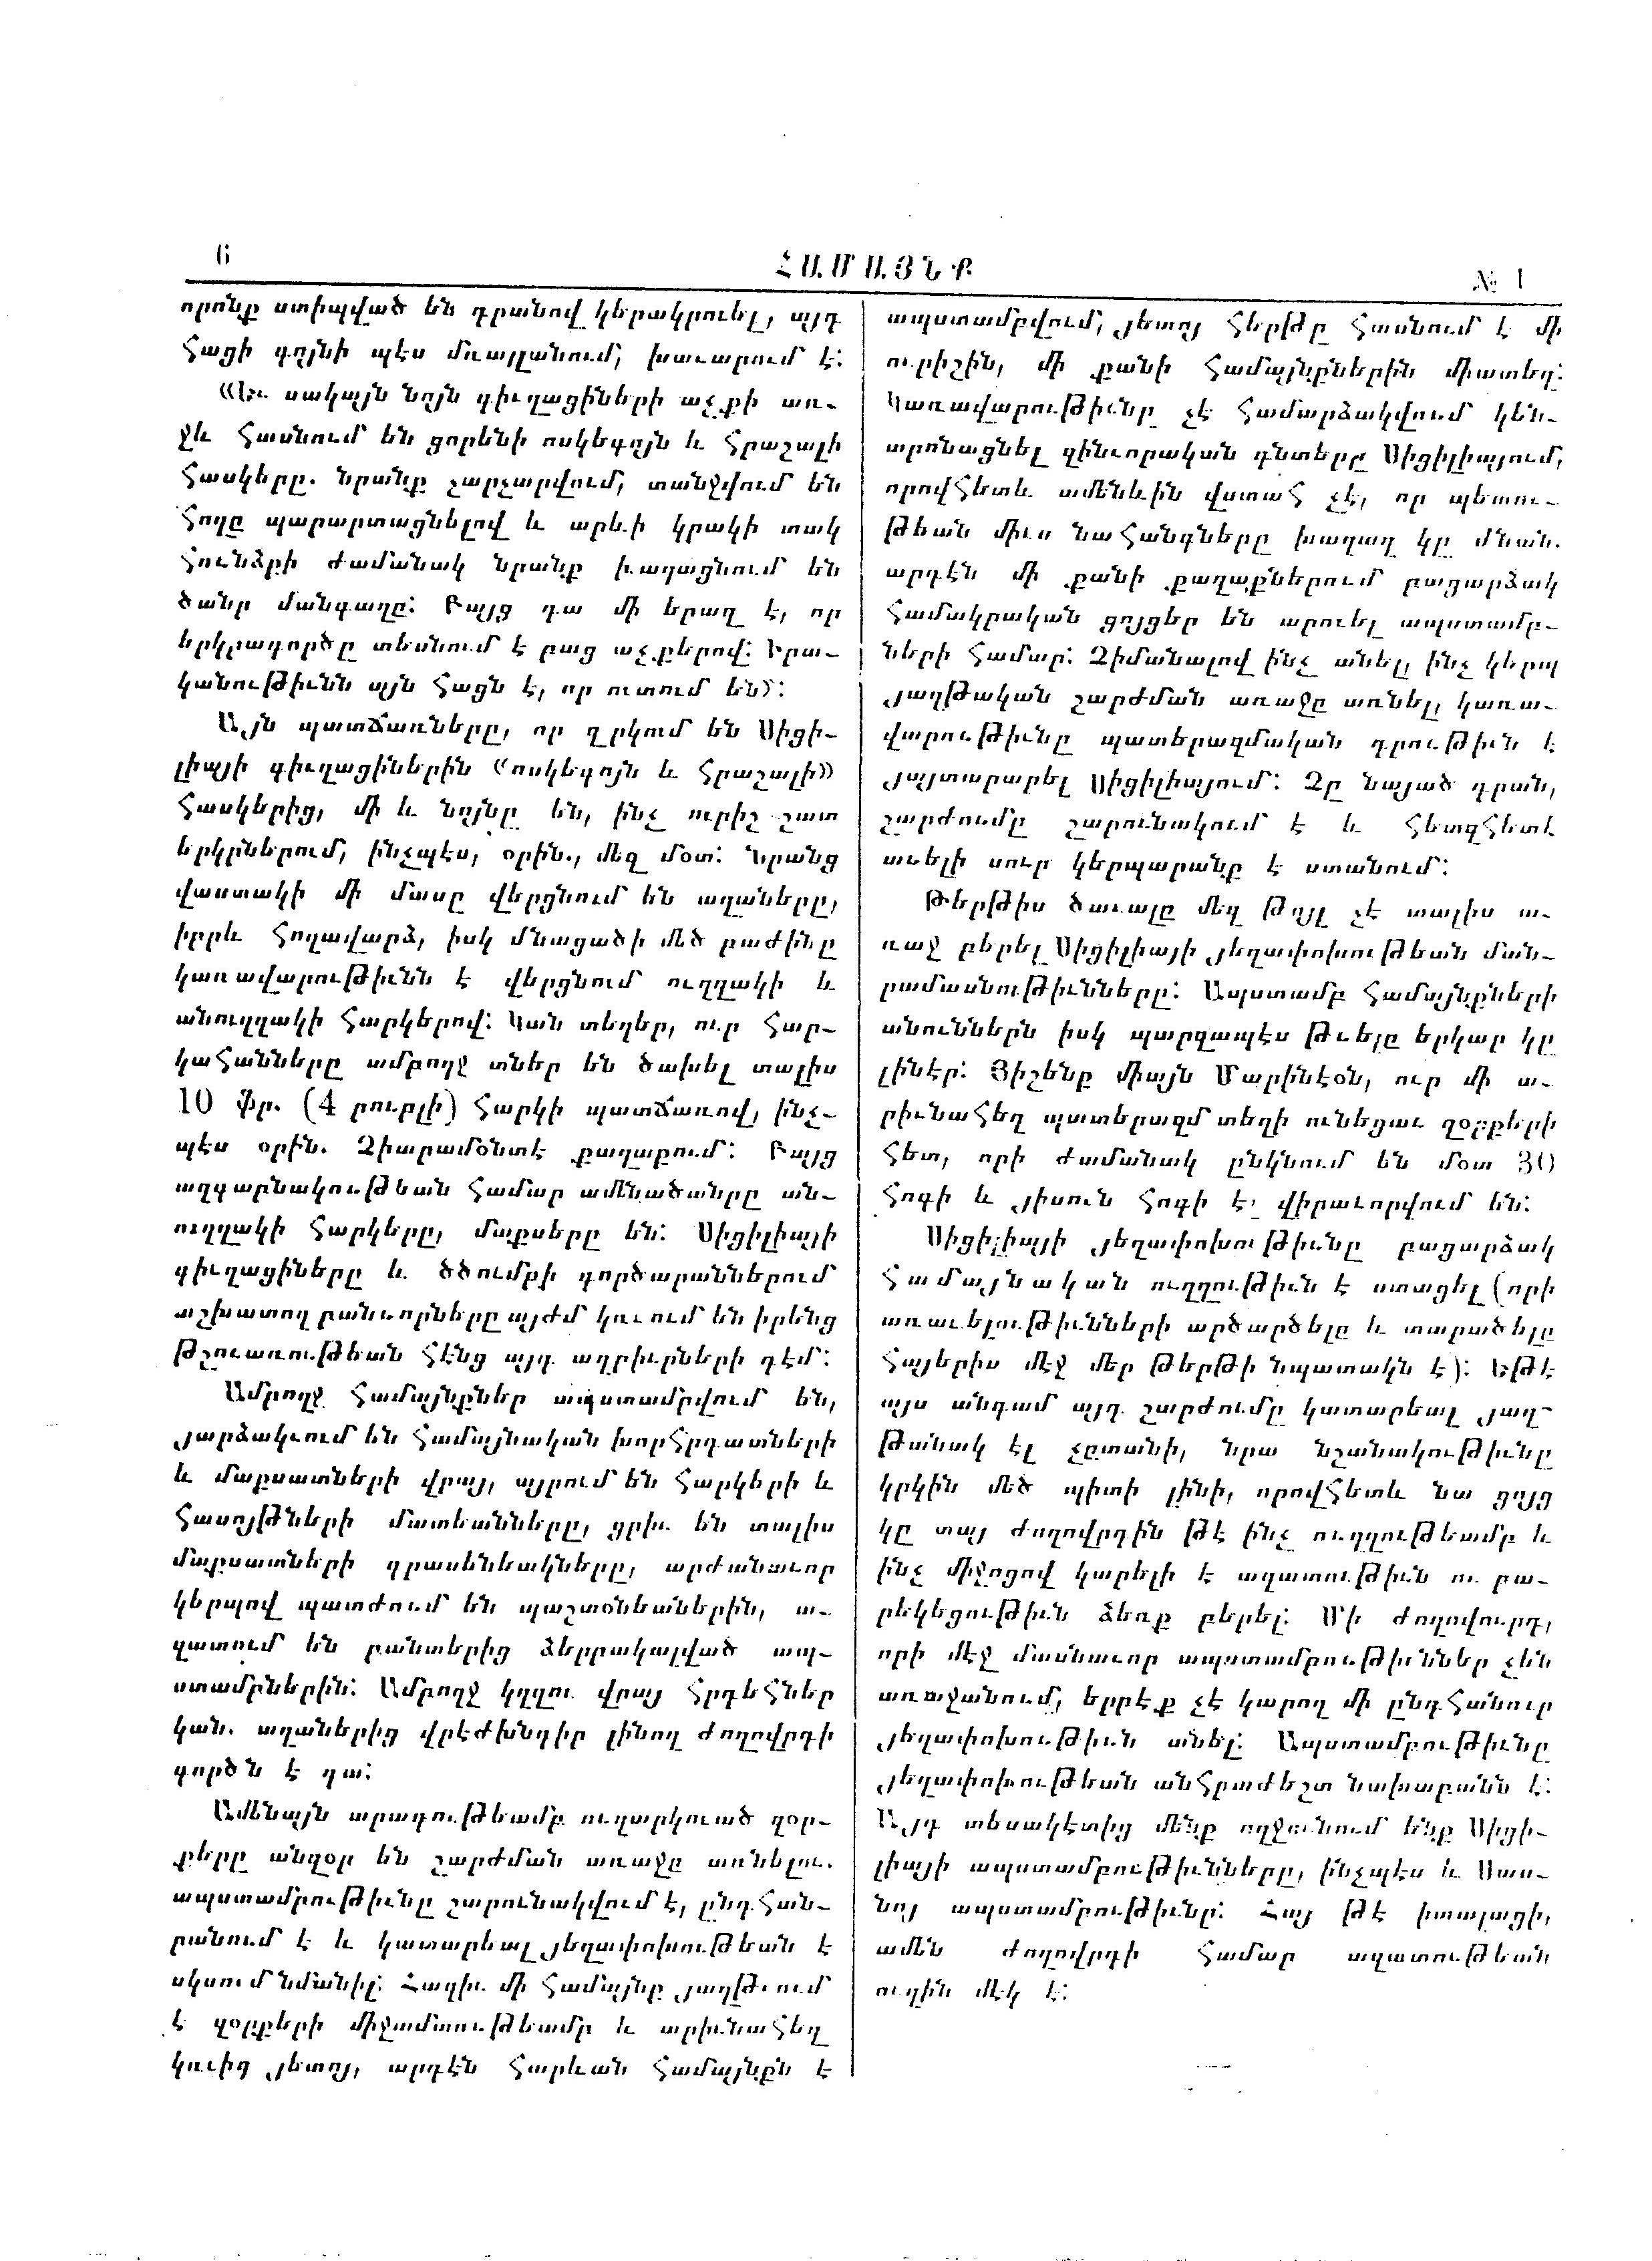 6
ՀԱՄԱՅՆՔ
№ 1
որոնք ստիպված են դրանով կերակրուել, այդ
հացի գոյնի պէս մռայլանում, խաւարում է:
«Եւ սակայն նոյն գիւղացիների աչքի առ-
ջև հասնում են ցորենի ոսկեգոյն և հրաշալի
հասկերը. նրանք չարչարվում, տանջվում են
հողը պարարտացնելով և արևի կրակի տակ
հունձքի ժամանակ նրանք խաղացնում են
ծանր մանգաղը: Բայց դա մի երազ է, որ
երկրագործը տեսնում է բաց աչքերով: Իրա-
կանութիւնն այն հացն է, որ ուտում են»:
Այն պատճառները, որ զրկում են Սիցի-
լիայի գիւղացիներին «ոսկեգոյն և հրաշալի»
հասկերից, մի և նոյնը են, ինչ ուրիշ շատ
երկրներում, ինչպէս, օրին., մեզ մօտ: Նրանց
վաստակի մի մասը վերցնում են աղաները,
իբրև հողավարձ, իսկ մնացածի մեծ բաժինը
կառավարութիւնն է վերցնում ուղղակի և
անուղղակի հարկերով: Կան տեղեր, ուր հար-
կահանները ամբողջ տներ են ծախել տալիս
10 ֆր. (4 րուբլի) հարկի պատճառով, ինչ-
պէս օրին. Չիարամօնտէ քաղաքում: Բայց
ազգաբնակութեան համար ամենածանրը ան-
ուղղակի հարկերը, մաքսերը են: Սիցիլիայի
գիւղացիները և ծծումբի գործարաններում
աշխատող բանւորները այժմ կռւում են իրենց
թշուառութեան հէնց այդ աղբիւրների դէմ:
Ամբողջ համայնքներ ապստամբվում են,
յարձակւում են համայնական խորհրդատների
և մաքսատների վրայ, այրում են հարկերի և
հասոյթների մատեանները, ցրիւ են տալիս
մաքսատների գրասենեակները, արժանաւոր
կերպով պատժում են պաշտօնեաներին, ա-
զատում են բանտերից ձերբակալված ապ-
ստամբներին: Ամբողջ կղզու վրայ հրդեհներ
կան. աղաներից վրէժխնդիր լինող ժողովրդի
գործն է դա:
Ամենայն արագութեամբ ուղարկուած զօր-
քերը անզօր են շարժման առաջը առնելու.
ապստամբութիւնը շարունակվում է, ընդհան-
րանում է և կատարեալ յեղափոխութեան է
սկսում նմանիլ: Հազիւ մի համայնք յաղթւում
է զօրքերի միջամտութեամբ և արիւնահեղ
կռւից յետոյ, արդէն հարևան համայնքն է
ապստամբվում, յետոյ հերթը հասնում է մի
ուրիշին, մի քանի համայնքներին միատեղ:
Կառավարութիւնը չէ համարձակվում կեն-
տրոնացնել զինւորական գնտերը Սիցիլիայում,
որովհետև ամենևին վստահ չէ, որ պետու-
թեան միւս նահանգները խաղաղ կը մնան.
արդէն մի քանի քաղաքներում բացարձակ
համակրական ցոյցեր են արուել ապստամբ-
ների համար: Չիմանալով ինչ անել, ինչ կերպ
յաղթական շարժման առաջը առնել, կառա-
վարութիւնը պատերազմական դրութիւն է
յայտարարել Սիցիլիայում: Չը նայած դրան,
շարժումը շարունակում է և հետզհետէ
աւելի սուր կերպարանք է ստանում:
Թերթիս ծաւալը մեզ թոյլ չէ տալիս ա-
ռաջ բերել Սիցիլիայի յեղափոխութեան ման-
րամասնութիւնները: Ապստամբ համայնքների
անուններն իսկ պարզապէս թւելը երկար կը
լինէր: Յիշենք միայն Մարինէօն, ուր մի ա-
րիւնահեղ պատերազմ տեղի ունեցաւ զօրքերի
հետ, որի ժամանակ ընկնում են մօտ 30
հոգի և յիսուն հոգի էլ վիրաւորվում են:
Սիցիլիայի յեղափոխութիւնը բացարձակ
համայնական ուղղութիւն է ստացել (որի
առաւելութիւնների արծարծելը և տարածելը
հայերիս մէջ մեր թերթի նպատակն է): Եթէ
այս անգամ այդ շարժումը կատարեալ յաղ-
թանակ էլ չըտանի, նրա նշանակութիւնը
կրկին մեծ պիտի լինի, որովհետև նա ցոյց
կը տայ ժողովրդին թէ ինչ ուղղութեամբ և
ինչ միջոցով կարելի է ազատութիւն ու բա-
րեկեցութիւն ձեռք բերել: Մի ժողովուրդ,
որի մէջ մասնաւոր ապստամբութիւններ չեն
առաջանում, երբէք չէ կարող մի ընդհանուր
յեղափոխութիւն անել: Ապստամբութիւնը
յեղափոխութեան անհրաժեշտ նախաբանն է:
Այդ տեսակէտից մենք ողջունում ենք Սիցի-
լիայի ապստամբութիւնները, ինչպէս և Սաս-
նոյ ապստամբութիւնը: Հայ թէ իտալացի,
ամեն ժողովրդի համար ազատութեան
ուղին մէկ է: